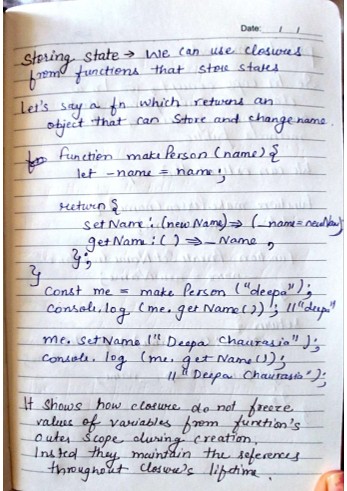 Date: / /
Storing state → We can use closures
from functions that store states
Let's say a fn which returns an
object that can store and change name.
function make Person (name) {
let _name = name;
return {
set Name: (new Name) => (_name = newName)
get Name: ( ) => _Name ,
};
}
Const me = make Person ("deepa");
console. log (me. get Name ( )) ; // "deepa"
me. set Name (" Deepa Chaurasia" );
console. log (me. get Name ( ));
// " Deepa Chaurasia" );
It shows how closure do not freeze
values of variables from function's
outer scope during creation.
Insted they maintain the references
throughout closure's lifetime.